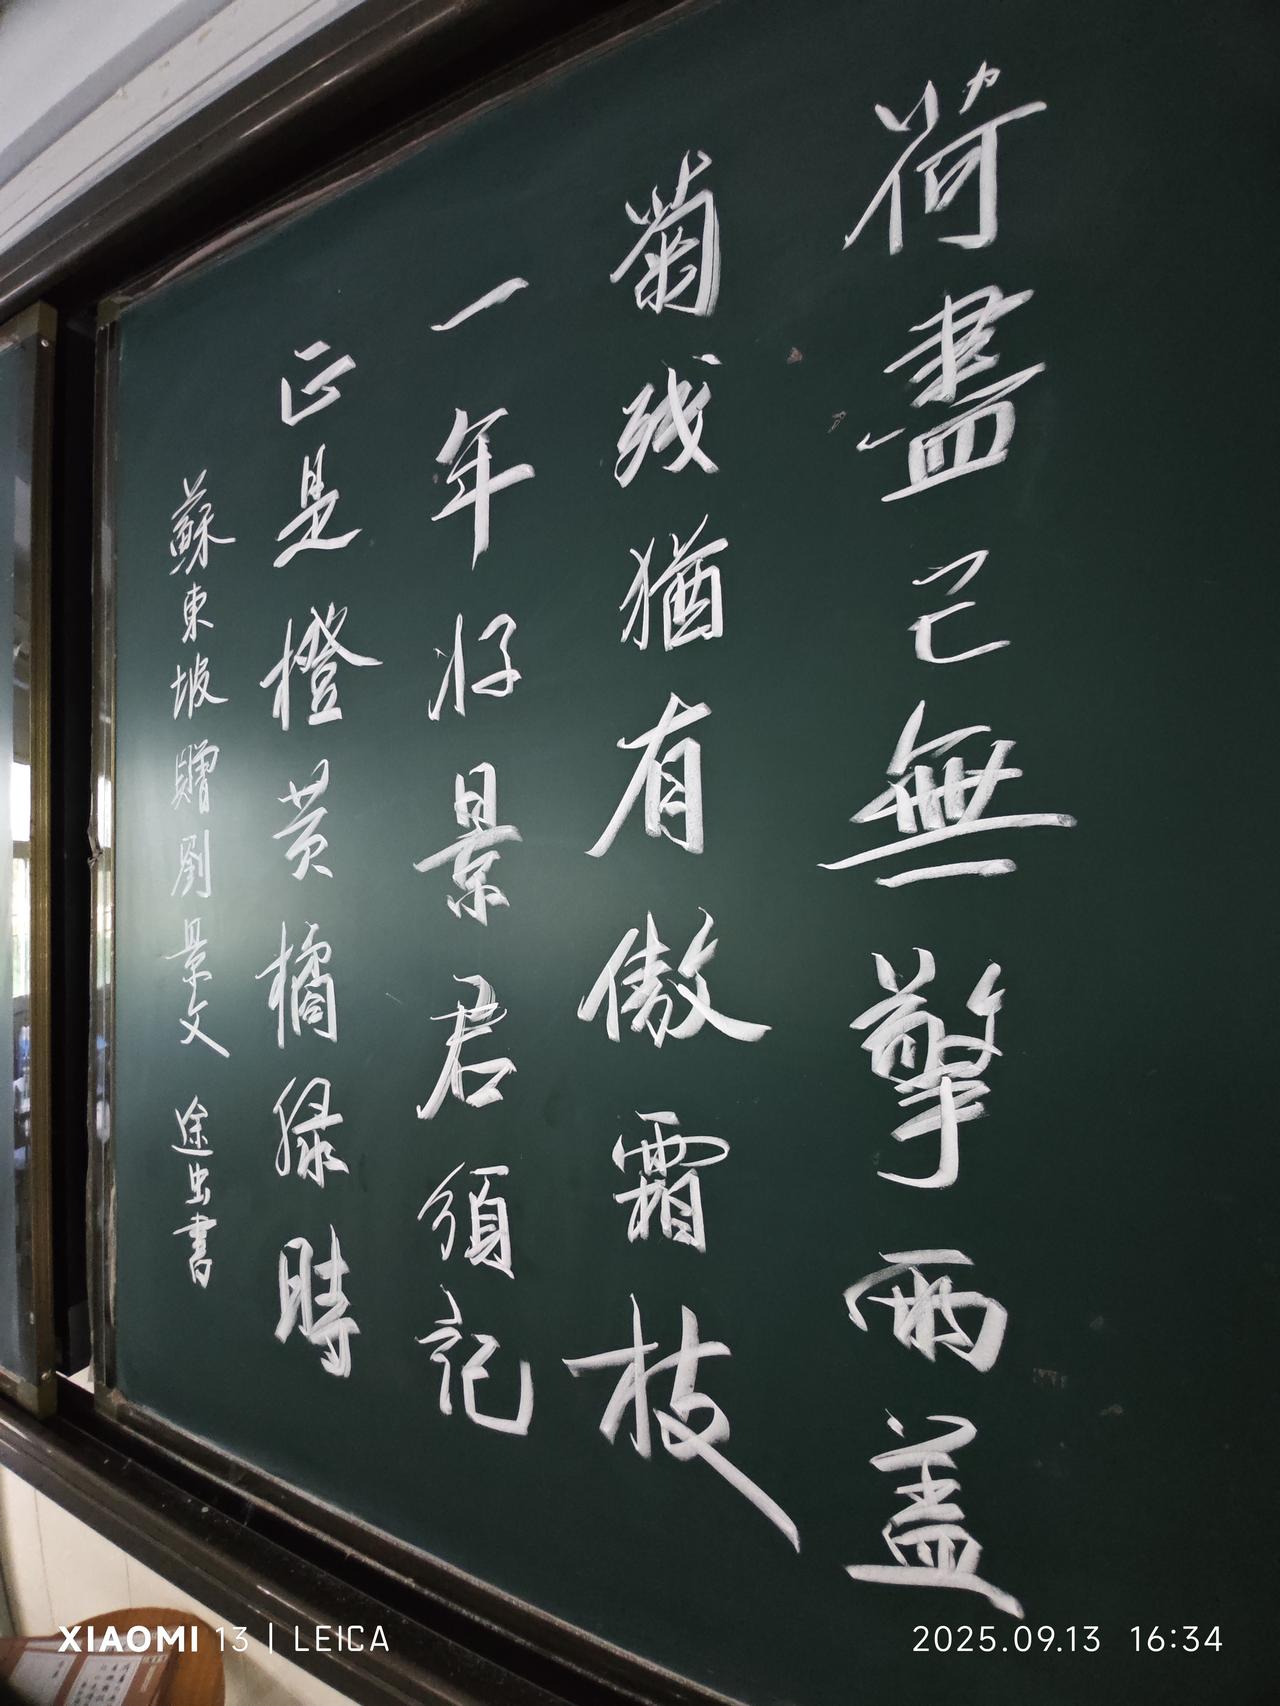 荷盡已無擎雨盖
菊残猶有傲霜枝
一年好景君須記
正是橙黄橘緑時
蘇東坡贈劉景文 途虫書
XIAOMI 13 | LEICA
2025.09.13 16:34